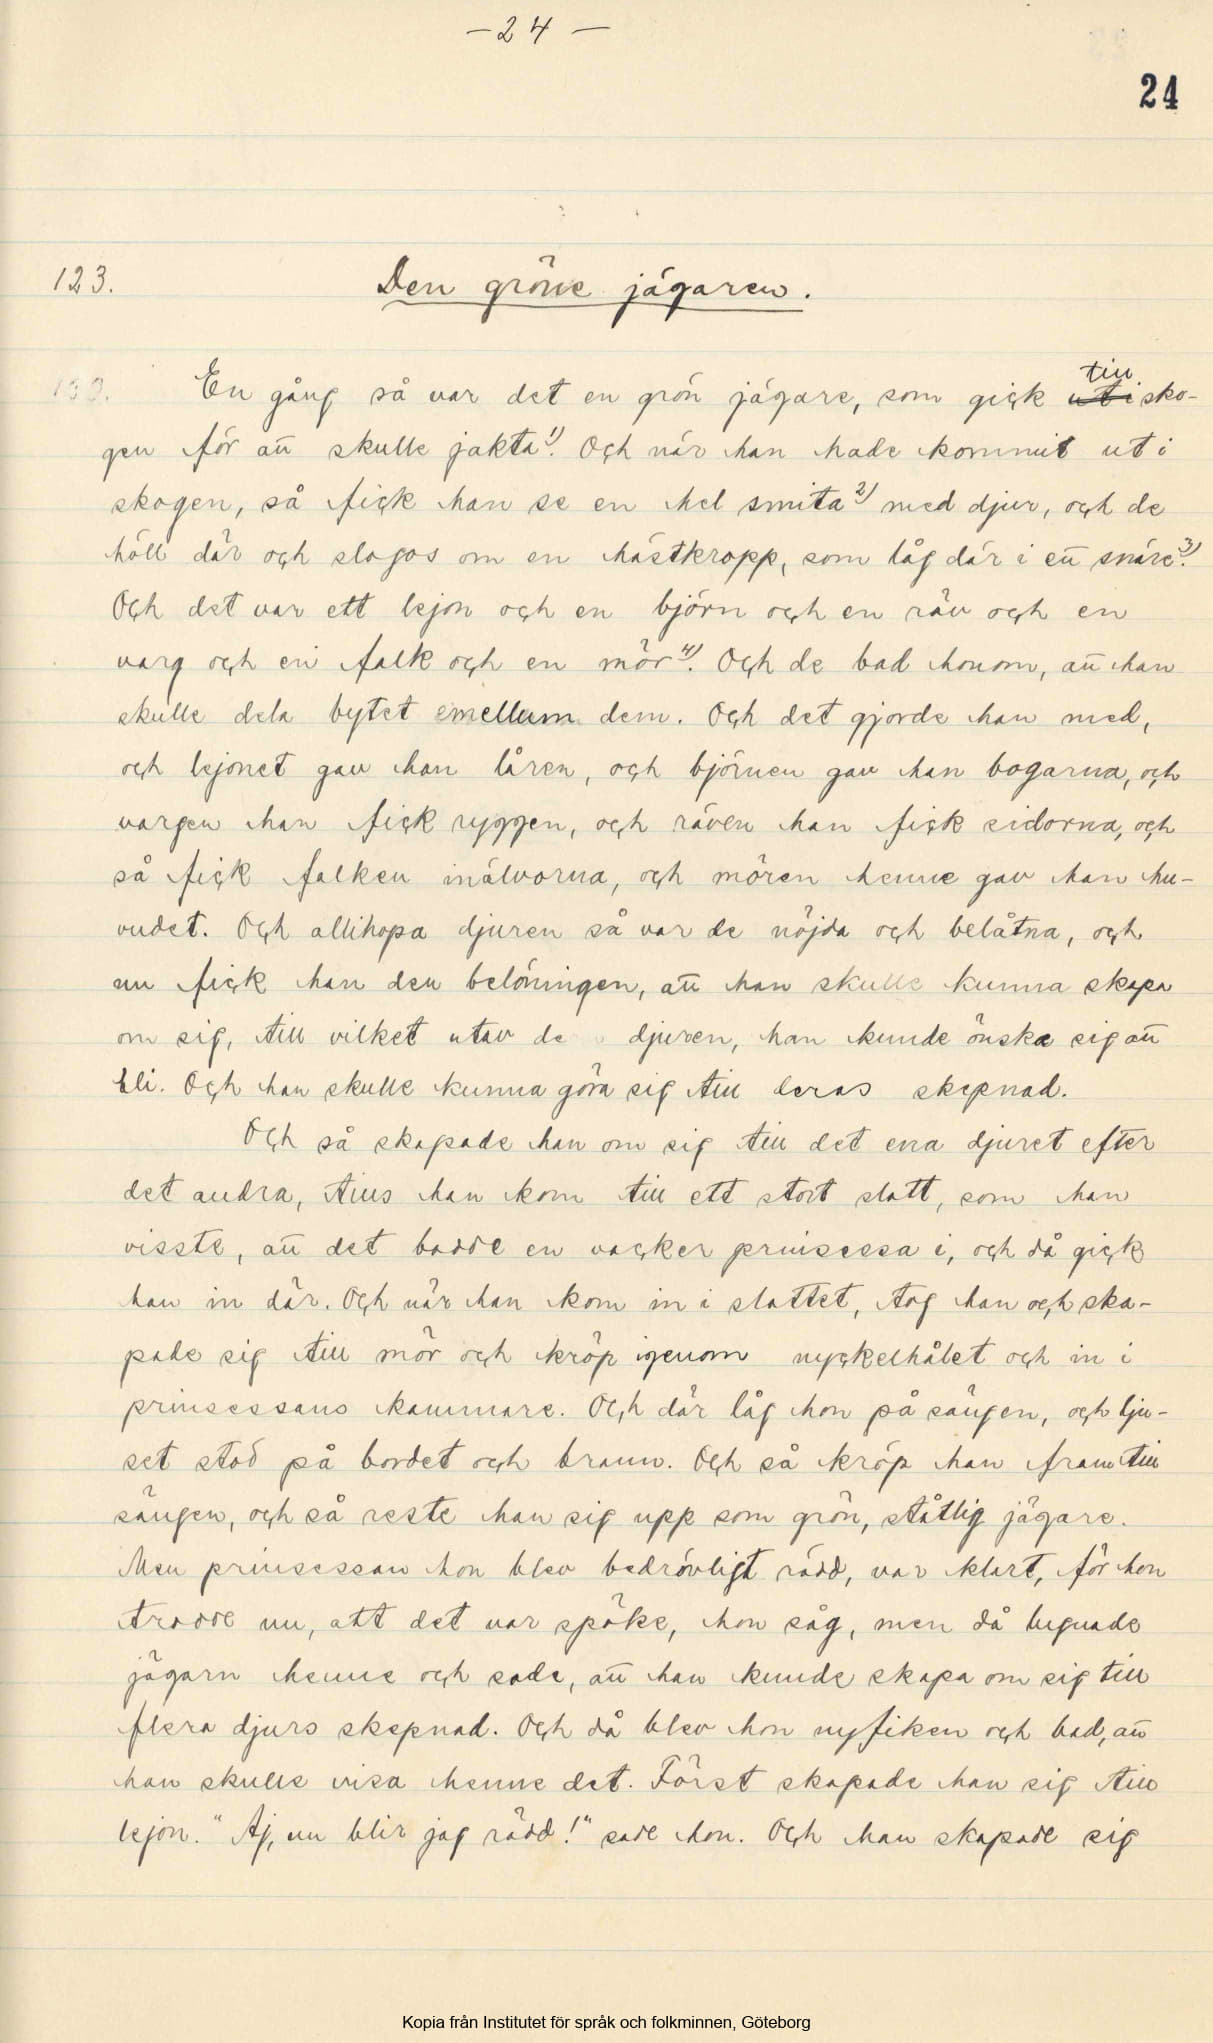 – 24 –
24
123. Den gröne jägaren.
En gång så var det en grön jägare, som gick ut i till sko-
gen för att skulle jakta1). Och när han hade kommit ut i
skogen, så fick han se en hel smita2) med djur, och de
höll där och slogos om en hästkropp, som låg där i en snåre3).
Och det var ett lejon och en björn och en räv och en
varg och en falk och en mör4). Och de bad honom, att han
skulle dela bytet emellum dem. Och det gjorde han med,
och lejonet gav han låren, och björnen gav han bogarna, och
vargen han fick ryggen, och räven han fick sidorna, och
så fick falken inälvorna, och mören henne gav han hu-
vudet. Och allihopa djuren så var de nöjda och belåtna, och
nu fick han den belöningen, att han skulle kunna skapa
om sig, till vilket utav de djuren, han kunde önska sig att
bli. Och han skulle kunna göra sig till deras skepnad.
Och så skapade han om sig till det ena djuret efter
det andra, tills han kom till ett stort slott, som han
visste, att det bodde en vacker prinsessa i, och då gick
han in där. Och när han kom in i slottet, tog han och ska-
pade sig till mör och kröp igenom nyckelhålet och in i
prinsessans kammare. Och där låg hon på sängen, och lju-
set stod på bordet och brann. Och så kröp han fram till
sängen, och så reste han sig upp som grön, ståtlig jägare.
Men prinsessan hon blev bedrövligt rädd, var klart, för hon
trodde nu, att det var spöke, hon såg, men då lugnade
jägarn henne och sade, att han kunde skapa om sig till
flera djurs skepnad. Och då blev hon nyfiken och bad, att
han skulle visa henne det. Först skapade han sig till
lejon. "Aj, nu blir jag rädd!" sade hon. Och han skapade sig
Kopia från Institutet för språk och folkminnen, Göteborg